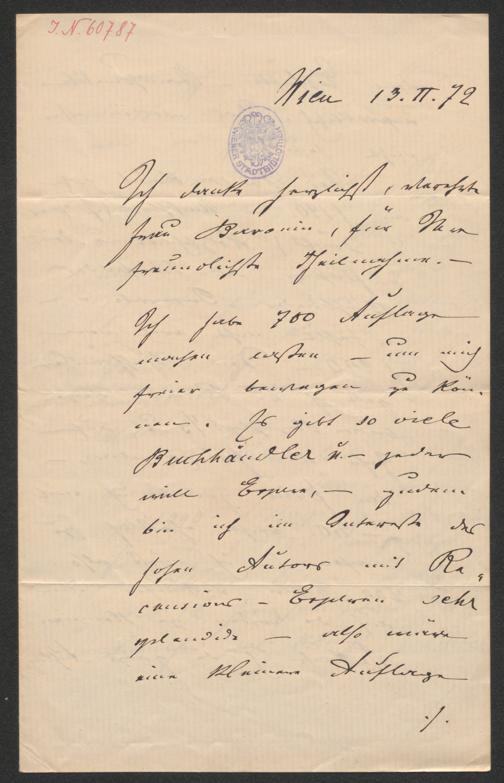 I.N. 60787
Wien 13. II. 72
WIENER STADTBIBLIOTHEK
Ich danke herzlichst, verehrte
Frau Baronin, für Ihre
freundlichste Theilnahme. –
Ich habe 700 Auflage
machen lassen – um mich
freier bewegen zu kön-
nen. Es gibt so viele
Buchhändler u. – jeder
will Expre, – zudem
bin ich im Interesse des
hohen Autors mit Re-
censions-Experen sehr
splendide – also wäre
eine kleinere Auflage
./.